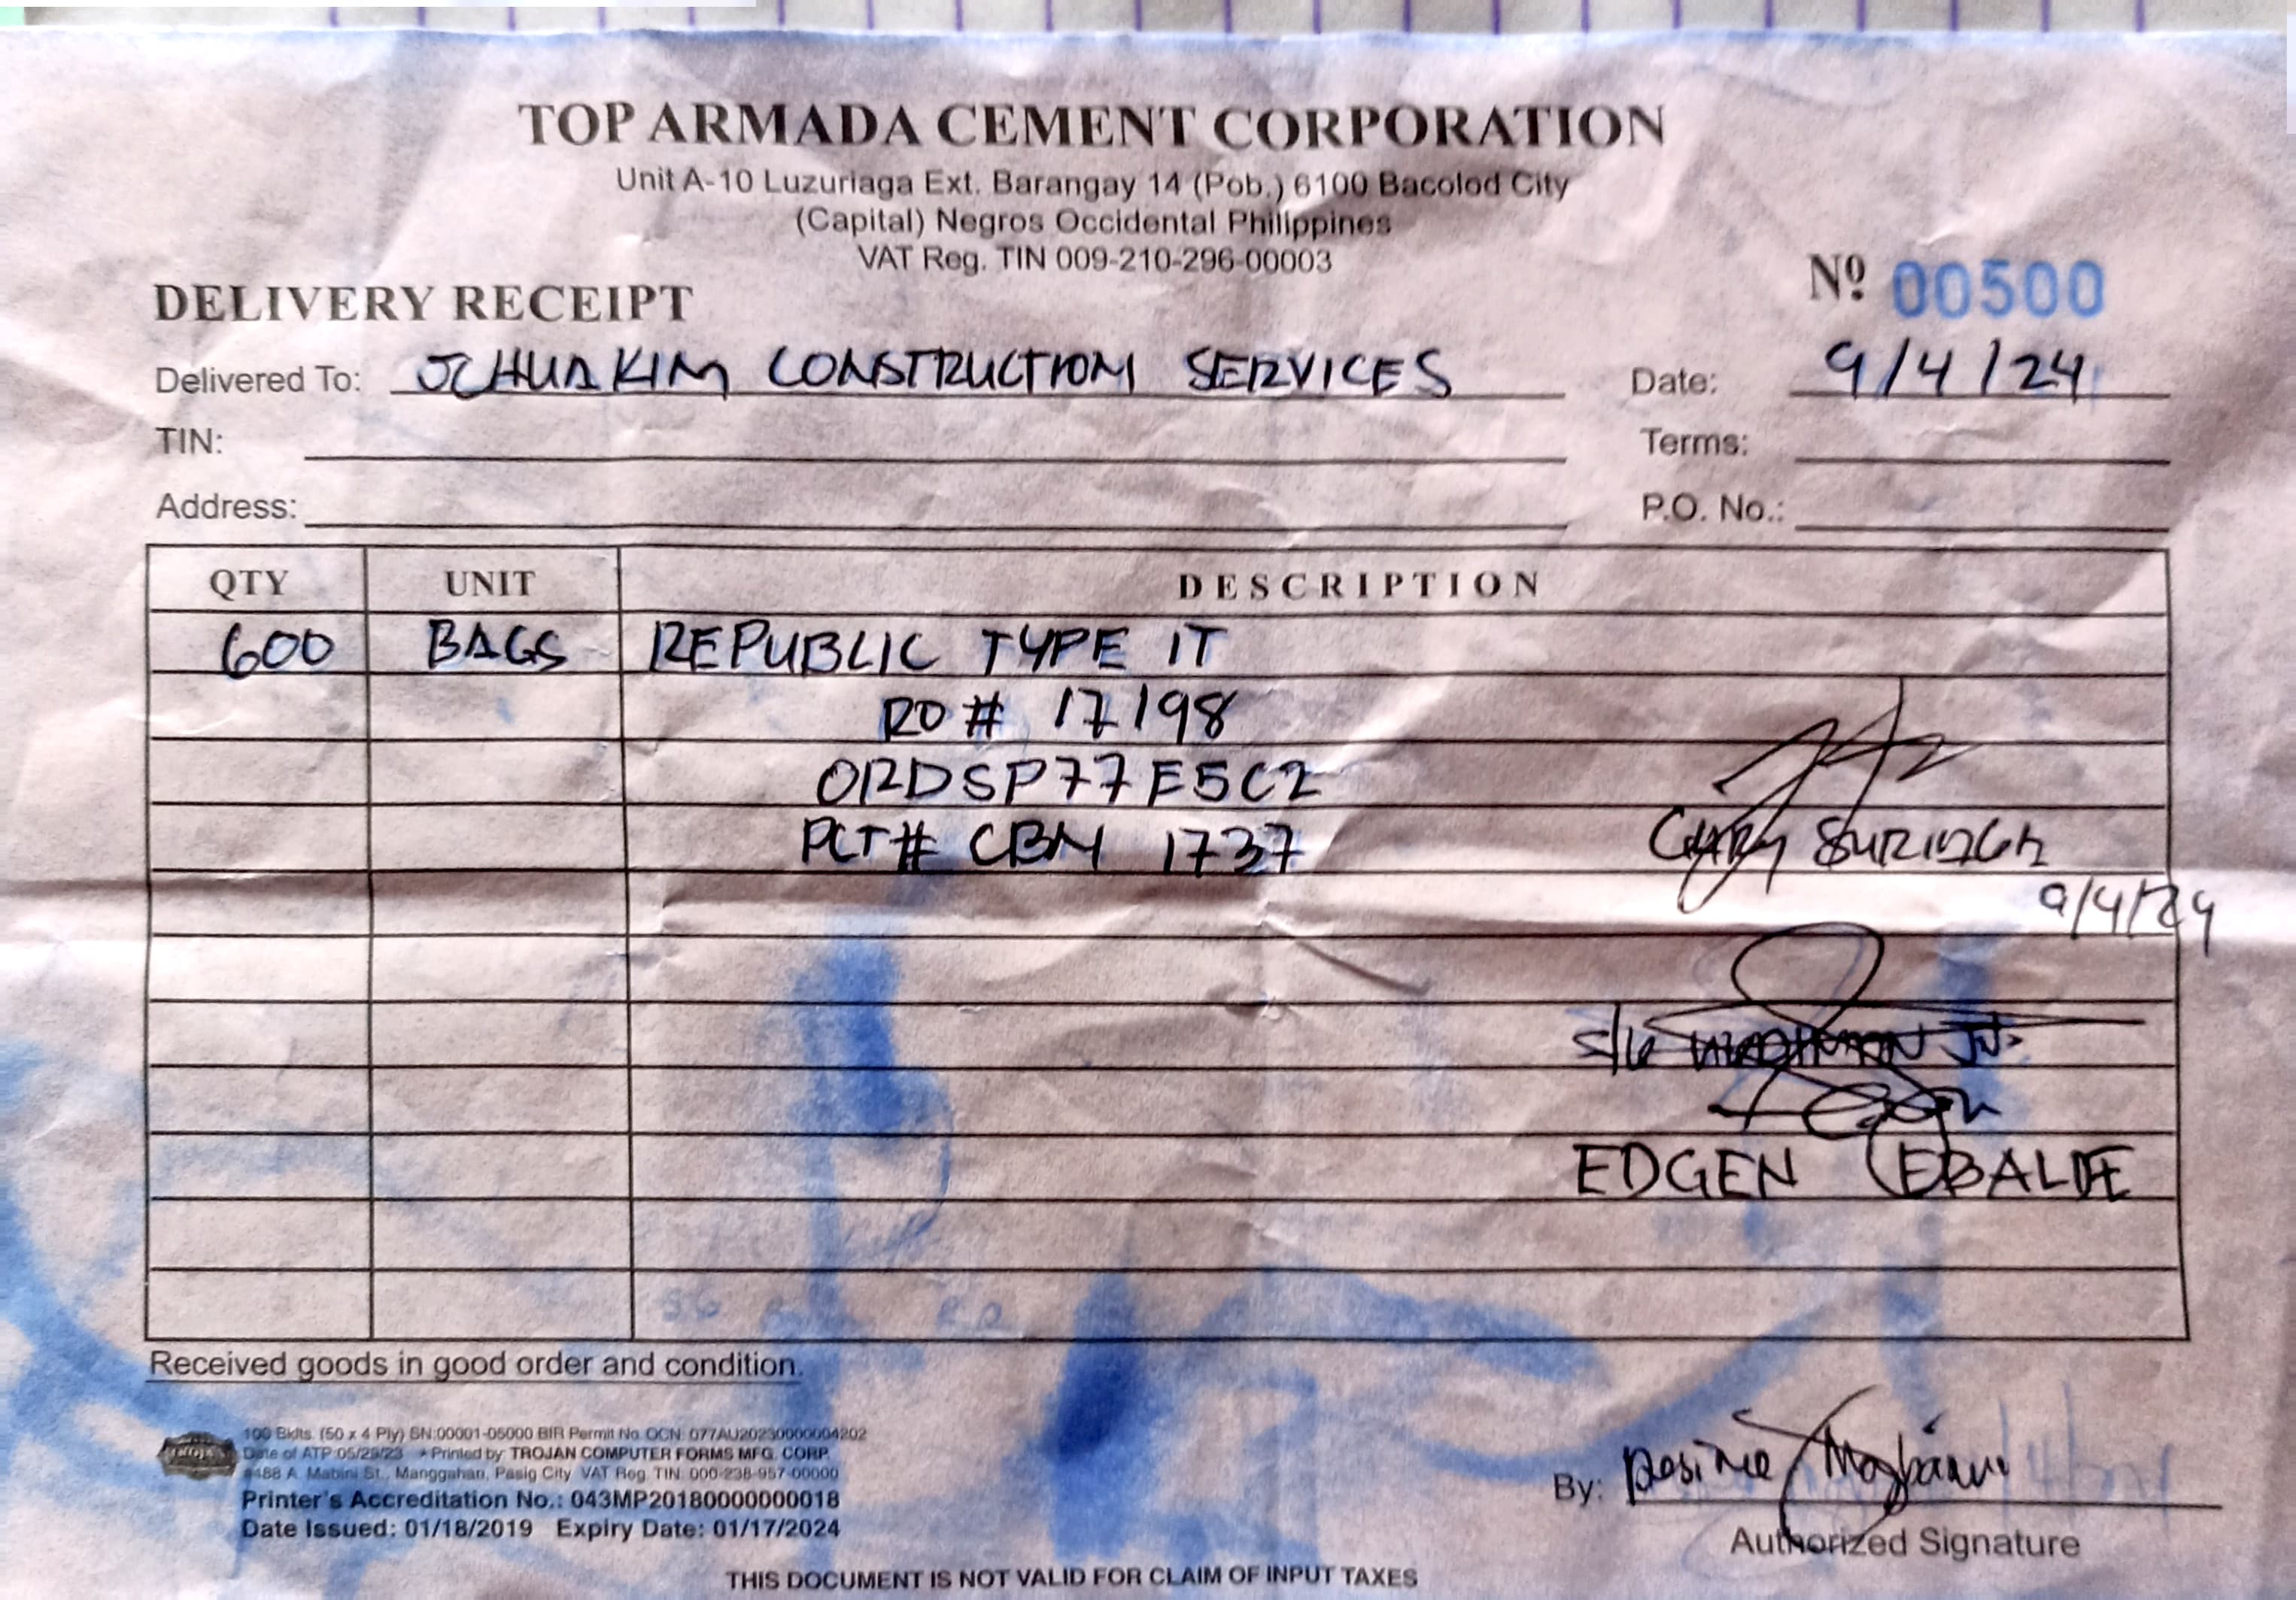 TOP ARMADA CEMENT CORPORATION
Unit A-10 Luzuriaga Ext. Barangay 14 (Pob.) 6100 Bacolod City
(Capital) Negros Occidental Philippines
VAT Reg. TIN 009-210-296-00003
DELIVERY RECEIPT
Nº 00500
Delivered To: JCHUAKIM CONSTRUCTION SERVICES
Date: 9/4/24
TIN:
Terms:
Address:
P.O. No.:
QTY UNIT DESCRIPTION
600 BAGS REPUBLIC TYPE 1T
RO# 17198
ORDSP77E5C2
PLT# CBM 1737
GARY
9/4/24
S/G JR.
EDGEN LEBALDE
Received goods in good order and condition.
100 Bklts. (50 x 4 Ply) SN:00001-05000 BIR Permit No. OCN: 077AU20230000004202
Date of ATP:05/29/23 * Printed by: TROJAN COMPUTER FORMS MFG. CORP.
#488 A. Mabini St., Manggahan, Pasig City VAT Reg. TIN: 000-238-957-00000
Printer's Accreditation No.: 043MP20180000000018
Date Issued: 01/18/2019 Expiry Date: 01/17/2024
By:
Authorized Signature
THIS DOCUMENT IS NOT VALID FOR CLAIM OF INPUT TAXES